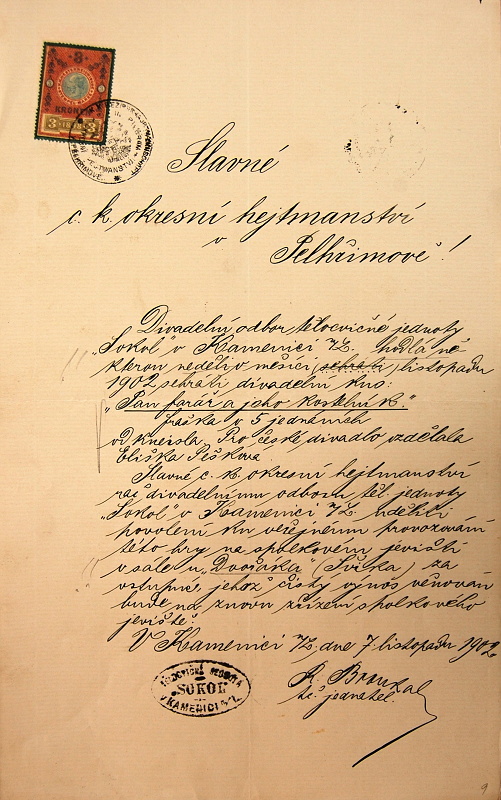 3
KRONEN
3 1898 3
Slavné
c. k. okresní hejtmanství
v
Pelhřimově!
Divadelní odbor tělocvičné jednoty
„Sokol" v Kamenici n/L. hodlá ně-
kterou neděli v měsíci (sehráti) listopadu
1902 sehráti divadelní kus:
„Pan farář a jeho kostelník."
fraška v 5 jednáních
od Kneisla. Pro české divadlo vzdělala
Eliška Pešková.
Slavné c. k. okresní hejtmanství
rač divadelnímu odboru těl. jednoty
„Sokol" v Kamenici n/L. uděliti
povolení ku veřejnému provozování
této hry na spolkovém jevišti
v sále u „Dvořáků" (Švíka) za
vstupné, jehož čistý výnos věnován
bude na znovu zřízení spolkového
jeviště.
V Kamenici n/L. dne 7. listopadu 1902
tč. jednatel.
TĚLOCVIČNÁ JEDNOTA
SOKOL
V KAMENICI N/L.
9